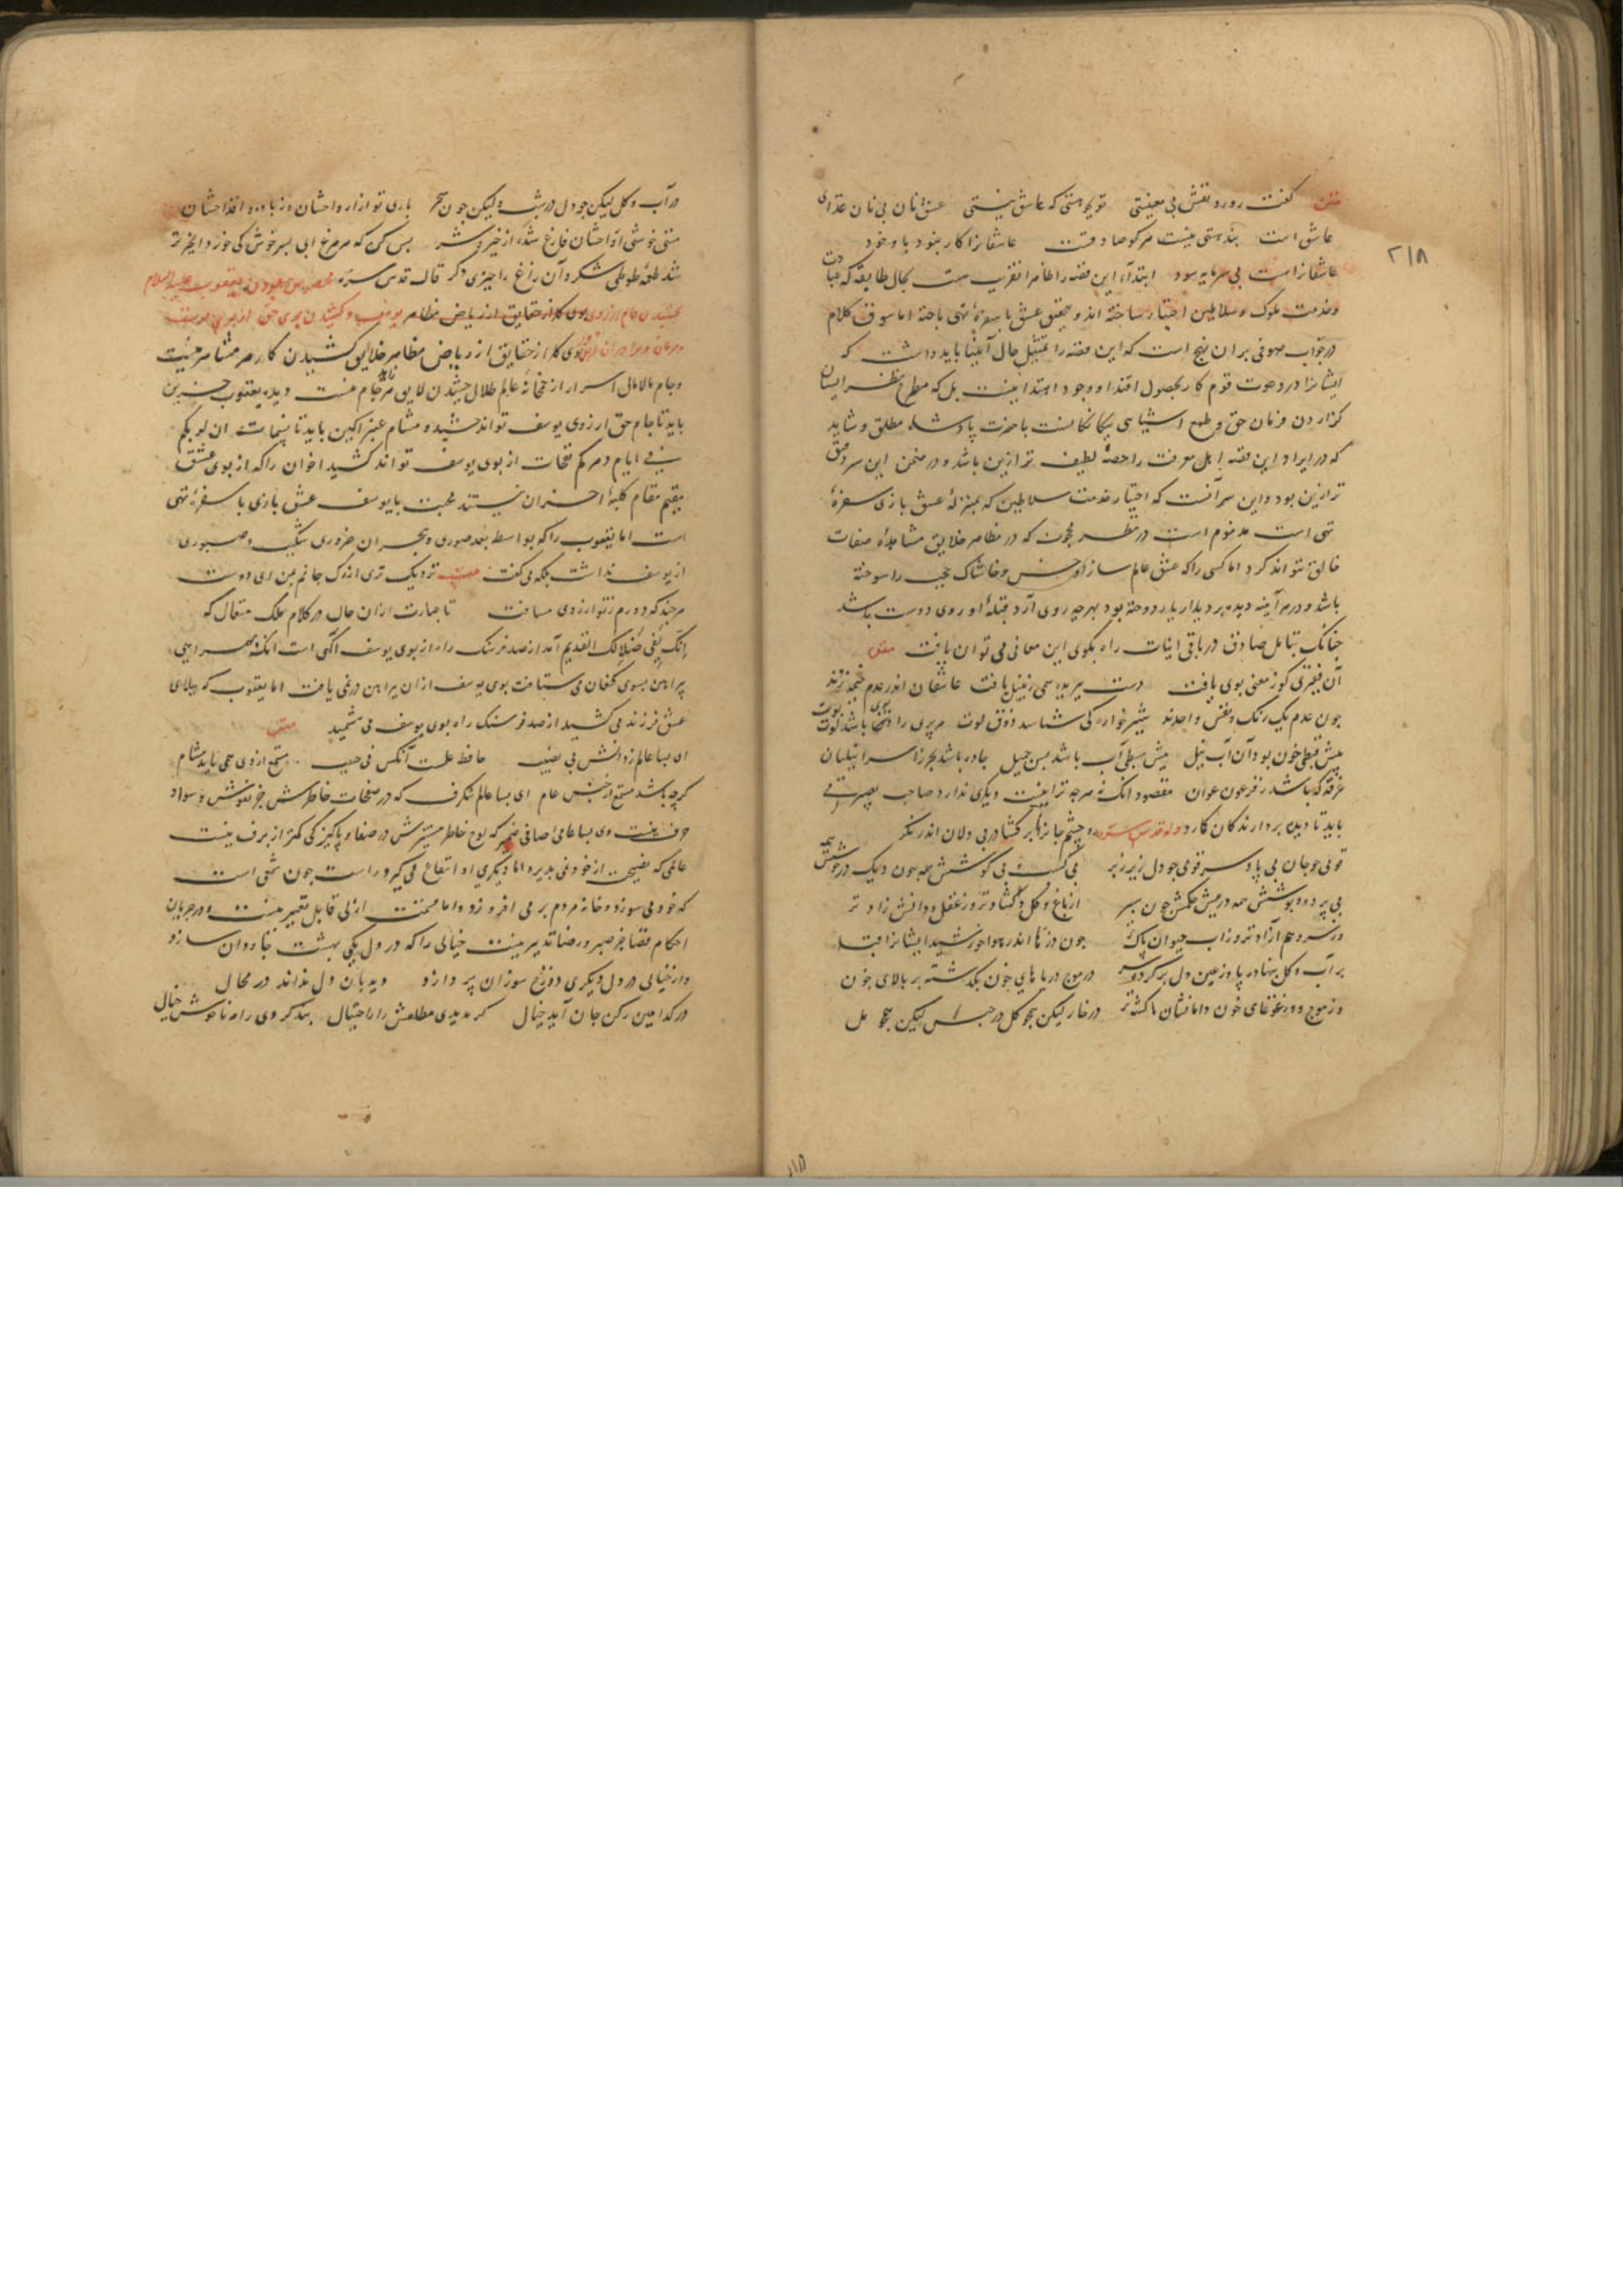 متن گفت رو رو نقش بی معنیستی تو بجو هستی که عاشق نیستی عشق نان بی نان غذای
عاشق است بند هستی نیست هر کو صادقست عاشقانرا کار نبود با وجود
عاشقانراست بی سرمایه سود ابتداء این قصه را ظاهرا بحال طایفه که عبادت
و خدمت ملوک و سلاطین اختیار ساخته اند و بعشق با سفرهٔ تهی باخته اما سوق کلام
در جواب صوفی بران نهج است که این قصه را تمثیل حال انبیا باید داشت که
ایشانرا در دعوت قوم کار بحصول اقتدا و وجود اهتدا نیست بل که مطمح نظر ایشان
گزاردن فرمان حق و طمع با حضرت پادشاه مطلق و شاید
که در ایراد این قصه اهل معرفت را حصهٔ لطیف تر ازین باشد و در ضمن این سر دقیق
تر ازین بود و این سر آنست که اختیار خدمت سلاطین که بمنزلهٔ عشق بازی سفرهٔ
تهی است مذموم است در نظر که در مظاهر خلایق مشاهدهٔ صفات
خالق نتواند کرد اما کسی را که عشق عالم سوز او خس و خاشاک حجب را سوخته
باشد و در هر آینه دیده بر دیدار یار دوخته بود بهرچه روی آرد قبلهٔ او روی دوست باشد
چنانک بتامل صادق در باقی ابیات راه بکوی این معانی می توان یافت متن
آن فقیری کو ز معنی بوی یافت دست ببریده همی زنبیل بافت عاشقان اندر عدم خیمه زدند
چون عدم یک رنگ و نفس واحدند شیر خواره کی شناسد ذوق لوت مر پری را بوی باشد لوت پوت
پیش قبطی خون بود آن آب نیل پیش سبطی آب باشد بس جمیل جاده باشد بحر ز اسرائیلیان
غرقه گه باشد ز فرعون عوان مقصود انک نه هرچه ترا نیست دیگری ندارد صاحب بصیرتی
باید تا دیدن دیدار ندگان کارد وله قدس سره چشم جانرا برگشا در بی دلان اندر نگر
قومی چو جان بی پا و سر قومی چو دل زیر و زبر بی کسب و بی کوشش همه چون دیک در جوشش همه
بی پرده و پوشش همه در پیش حکمش چون سپر از باغ و گل دلگشاتر وز عقل و دانش زادتر
وز سرو هم آزادتر وز آب حیوان پاک تر چون ذرها اندر هوا خورشید ایشانرا قبا
بر آب و گل بنهاده پا وز عین دل بر کرده سر در موج دریاهای خون بگذشته بر بالای خون
وز موج وز غوغای خون دامانشان ناگشته تر در خار لیکن همچو گل در حبس لیکن همچو مل
در آب و گل لیکن چو دل در شب ولیکن چون سحر باری تو از ارواحشان وز باده و اقداحشان
مستی خوشی از راحشان فارغ شده از خیر و شر بس کن که هر مرغ ای پسر خوش کی خورد انجیر تر
شد طعمهٔ طوطی شکر وآن زاغ را چیزی دگر قال قدس سره مخصوص بودن یعقوب علیه السلام
بچشیدن جام از روی یوسف و کشیدن بوی حق از بوی یوسف
و حرمان برادران بوی گل از حقایق از ریاض مظاهر خلایق کشیدن کار هر مشام نیست
و جام مالامال اسرار از خمخانهٔ عالم ظلال چشیدن لایق هر ناکام نیست دیدهٔ یعقوب حزین
باید تا جام حق از روی یوسف تواند چشید و مشام عنبرآگین باید تا نسمات ان لربکم
فی ایام دهرکم نفحات از بوی یوسف تواند کشید اخوان را که از بوی عشق
مقیم مقام کلبهٔ احزان نیستند محبت با یوسف عشق بازی با سفرهٔ تهی
است اما یعقوب را که بواسطهٔ بعد صوری و هجران ضروری شکیب و صبوری
از یوسف نداشت بلکه می گفت بیت نزدیک تری از رگ جانم بمن ای دوست
هرچند که دورم ز تو از روی مسافت تا عبارت ازان حال در کلام ملک متعال که
إنک لفی ضلالک القدیم آمد از صد فرسنگ راه از بوی یوسف آگهی است انک بهمراهی
پیراهن بسوی کنعان می شتافت بوی یوسف ازان پیراهن در نمی یافت اما یعقوب که
عشق فرزند می کشید از صد فرسنگ راه بوی یوسف می شمید متن
ای بسا عالم ز دانش بی نصیب حافظ علمست آنکس نی حبیب مستمع از وی همی یابد مشام
گرچه باشد مستمع از جنس عام ای بسا عالم شگرف که در صفحات خاطرش جز نقوش و سواد
حرف نیست وی بسا عامی صافی ضمیر که لوح خاطر مستنیرش در صفا و پاکیزگی کمتر از برف نیست
عالمی که نصیحت از خود نمی پذیرد اما دیگری ازو انتفاع می گیرد راست چون شمعی است
که خود می سوزد و خانهٔ مردم بر می افروزد و اما قسمت ازلی قابل تغییر نیست و در جریان
احکام قضا جز صبر و رضا تدبیر نیست خیالی را که در دل یکی بهشت جاودان سازد
و از خیالی در دل دیگری دوزخ سوزان پردازد دیدبان دل نداند در مجال
در کدامین رکن جان آید خیال گر بدیدی مطلعش را ز احتیال بند کردی راه ناخوش خیال